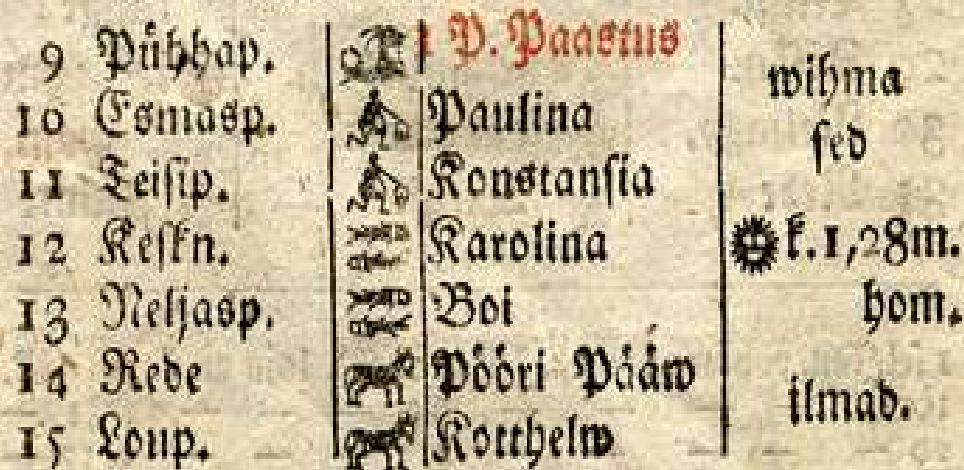 9 Pühhap. 1 P. Paastus
wihma
10 Esmasp. Paulina
sed
11 Teisip. Konstansia
12 Keskn. Karolina k. 1, 28m.
13 Neljasp. Boi hom.
14 Rede Pööri Pääw
ilmad.
15 Loup. Kotthelw